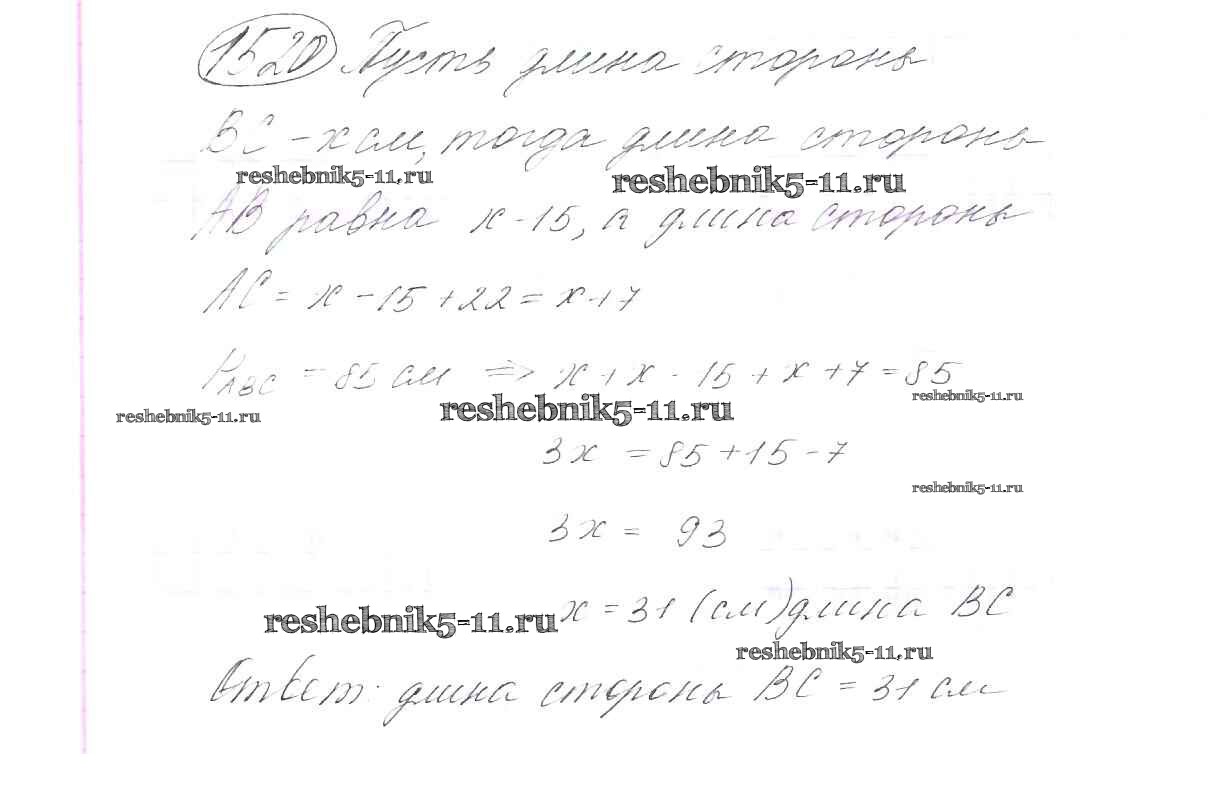 1520 Пусть длина стороны
ВС - х см, тогда длина стороны
reshebnik5-11.ru reshebnik5-11.ru
АВ равна х - 15, а длина стороны
АС = х - 15 + 22 = х + 7
P ABC = 85 см => х + х - 15 + х + 7 = 85
reshebnik5-11.ru reshebnik5-11.ru reshebnik5-11.ru
3х = 85 + 15 - 7
reshebnik5-11.ru
3х = 93
reshebnik5-11.ru х = 31 (см) длина ВС
reshebnik5-11.ru
Ответ: длина стороны ВС = 31 см